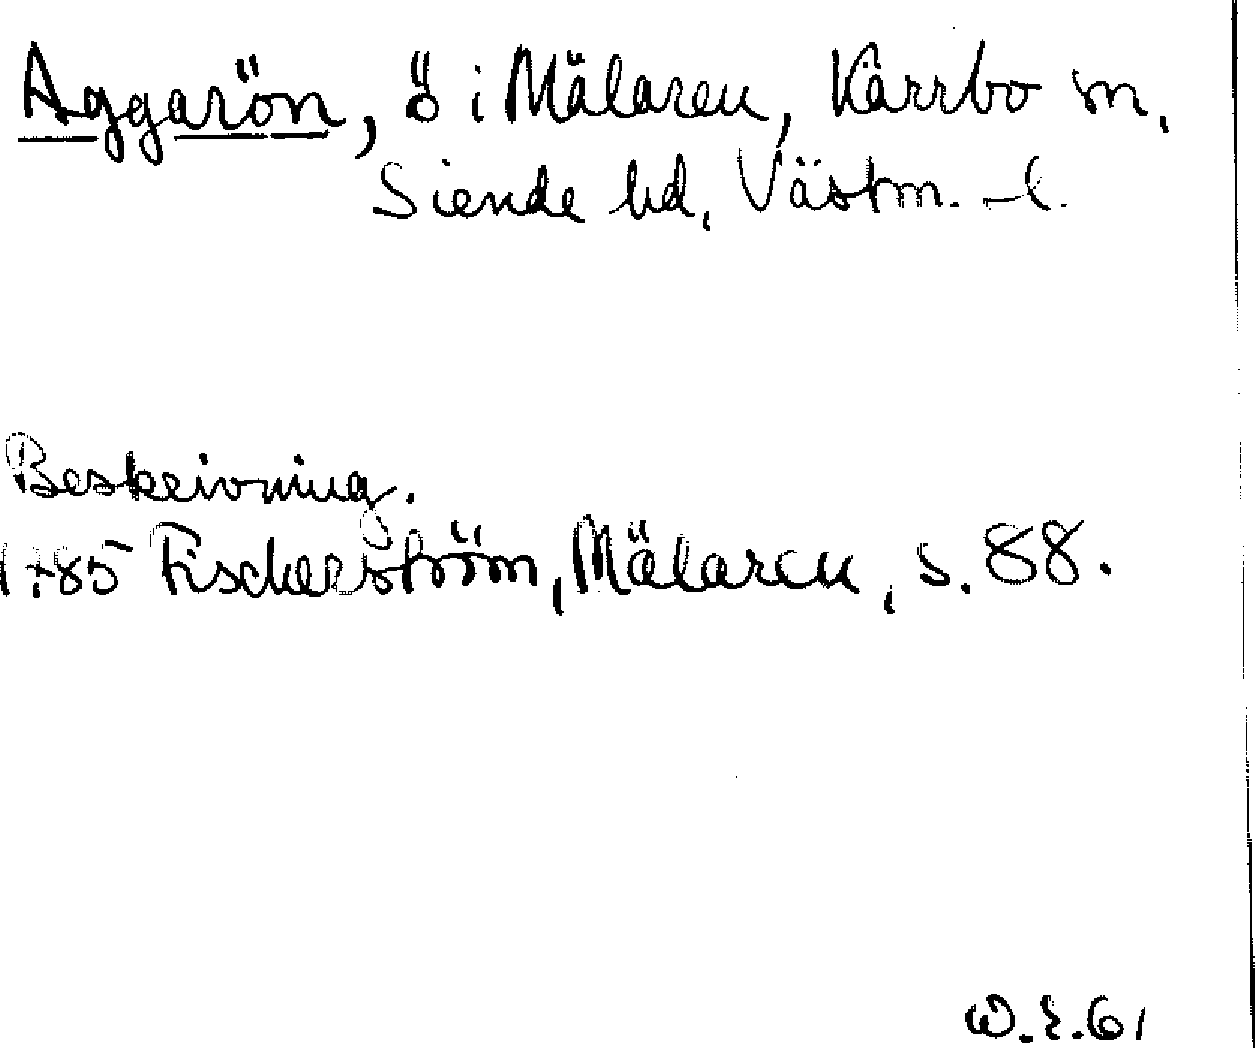 Aggarön, ö i Mälaren, Kärrbo sn,
Siende hd, Västm. l.
Beskrivning.
1785 Fischerström, Mälaren, s. 88.
W.E.61